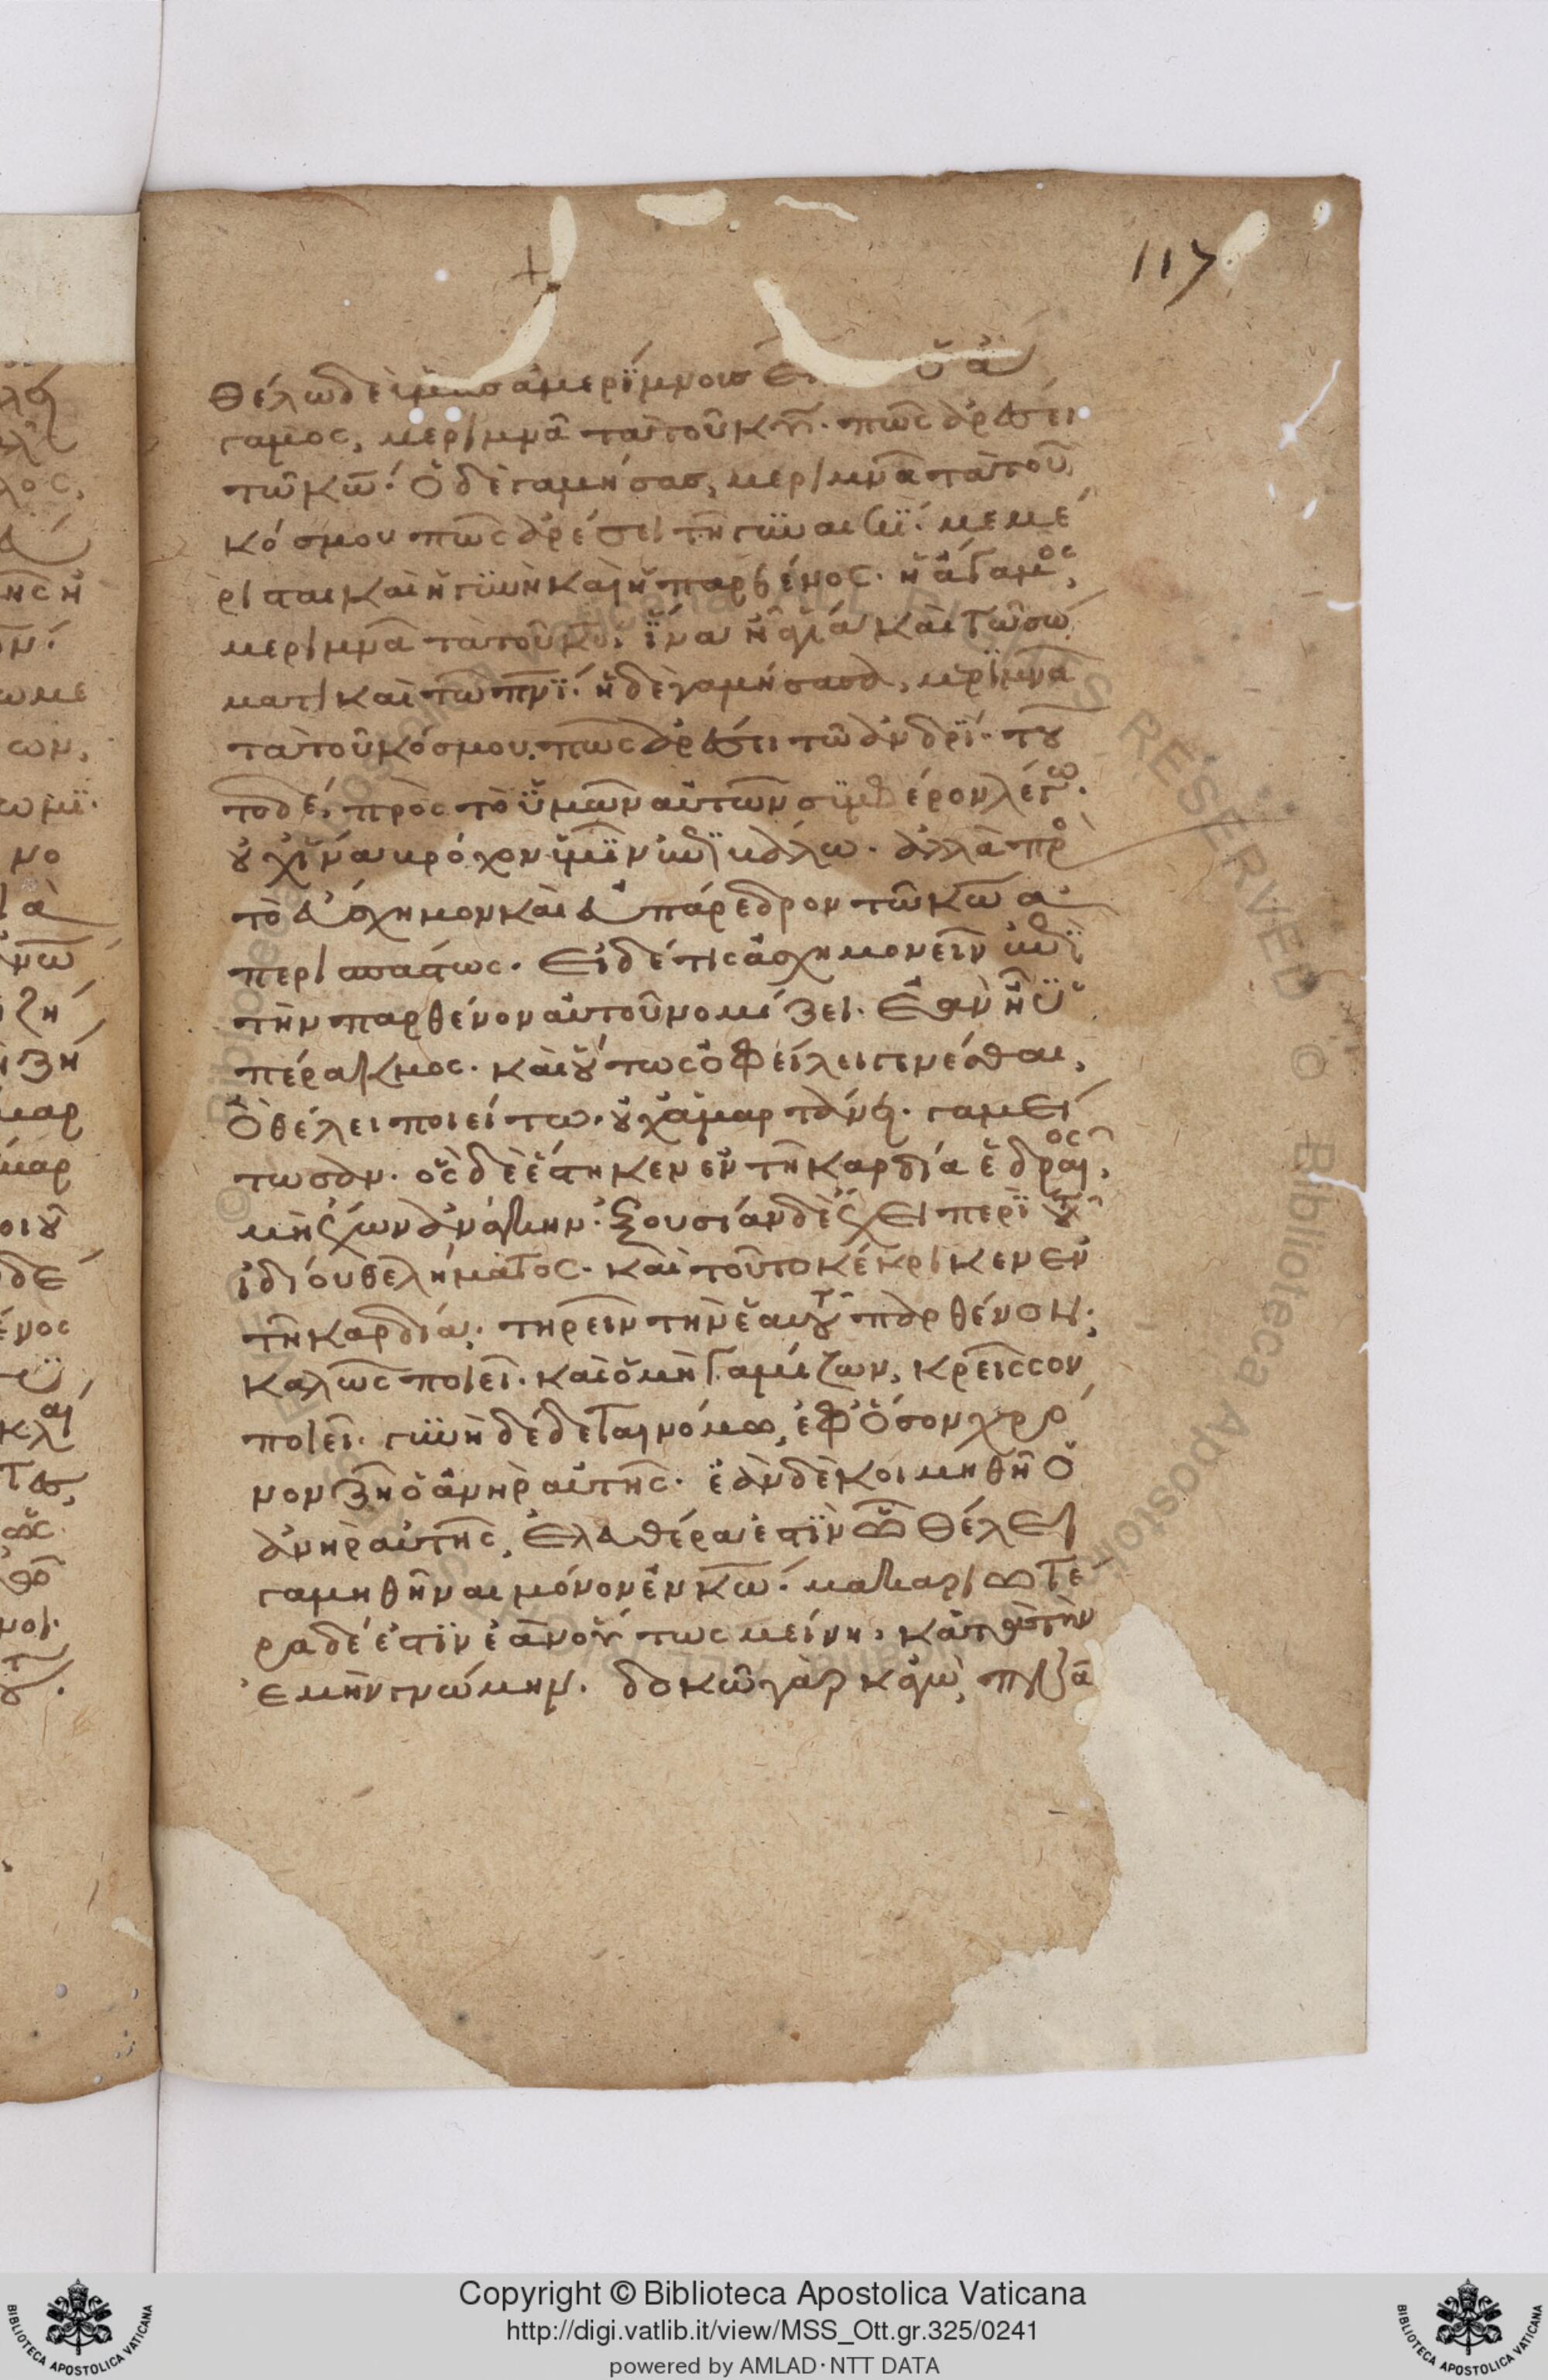 117
θέλω δὲ ὑμᾶς ἀμερίμνους ὁ ἄ
γαμος, μεριμνᾶ τὰ τοῦ κυ. πῶς ἀρέσει
τῶ κω. ὁ δὲ γαμήσας, μεριμνᾶ τὰ τοῦ
κόσμου πῶς ἀρέσει τῆ γυναικϊ. μεμέ
ρισται καὶ ἡ γυνὴ καὶ ἡ παρθένος. ἡ ἄγαμος,
μεριμνᾶ τὰ τοῦ κυ. ἵνα ἦ ἁγία καὶ τῶ σώ
ματι καὶ τῶ πνϊ. ἡ δὲ γαμήσασα, μεριμνᾶ
τὰ τοῦ κόσμου. πῶς ἀρέσει τῶ ἀνδρΐ. τοῦ
το δὲ, πρὸς τὸ ὑμῶν αὐτῶν συμφέρον λέγω.
οὐχ ἵνα βρόχον ὑμῖν ἐπιβάλω. ἀλλὰ πρὸ
τὸ εὔσχημον καὶ εὐπάρεδρον τῶ κω ἀ
περισπάστως. Εἰ δέ τις ἀσχημονεῖν ἐπὶ
τὴν παρθένον αὐτοῦ νομίζει. Ἐὰν ἦ ὑ
πέρακμος. καὶ οὕτως ὀφείλει γινέσθαι,
Ὃ θέλει ποιείτω. οὐχ ἁμαρτάνει. γαμεί
τωσαν. ὃς δὲ ἕστηκεν ἐν τῆ καρδία ἑδραῖος,
μὴ ἔχων ἀνάγκην. ἐξουσίαν δὲ ἔχει περὶ τοῦ
ἰδίου θελήματος. καὶ τοῦτο κέκρικεν ἐν
τῆ καρδία. τηρεῖν τὴν ἑαυτοῦ παρθένον.
καλῶς ποιεῖ. καὶ ὁ μὴ γαμίζων, κρεῖσσον
ποιεῖ. γυνὴ δέδεται νόμω, ἐφ' ὅσον χρό
νον ζῆ ὁ ἀνὴρ αὐτῆς. ἐὰν δὲ κοιμηθῆ ὁ
ἀνὴρ αὐτῆς, ἐλευθέρα ἐστὶν ὧ θέλει
γαμηθῆναι μόνον ἐν κω. μακαριωτέ
ρα δέ ἐστιν ἐὰν οὕτως μείνη, κατὰ τὴν
ἐμὴν γνώμην. δοκῶ γὰρ κἀγὼ,
Copyright © Biblioteca Apostolica Vaticana
http://digi.vatlib.it/view/MSS_Ott.gr.325/0241
powered by AMLAD·NTT DATA